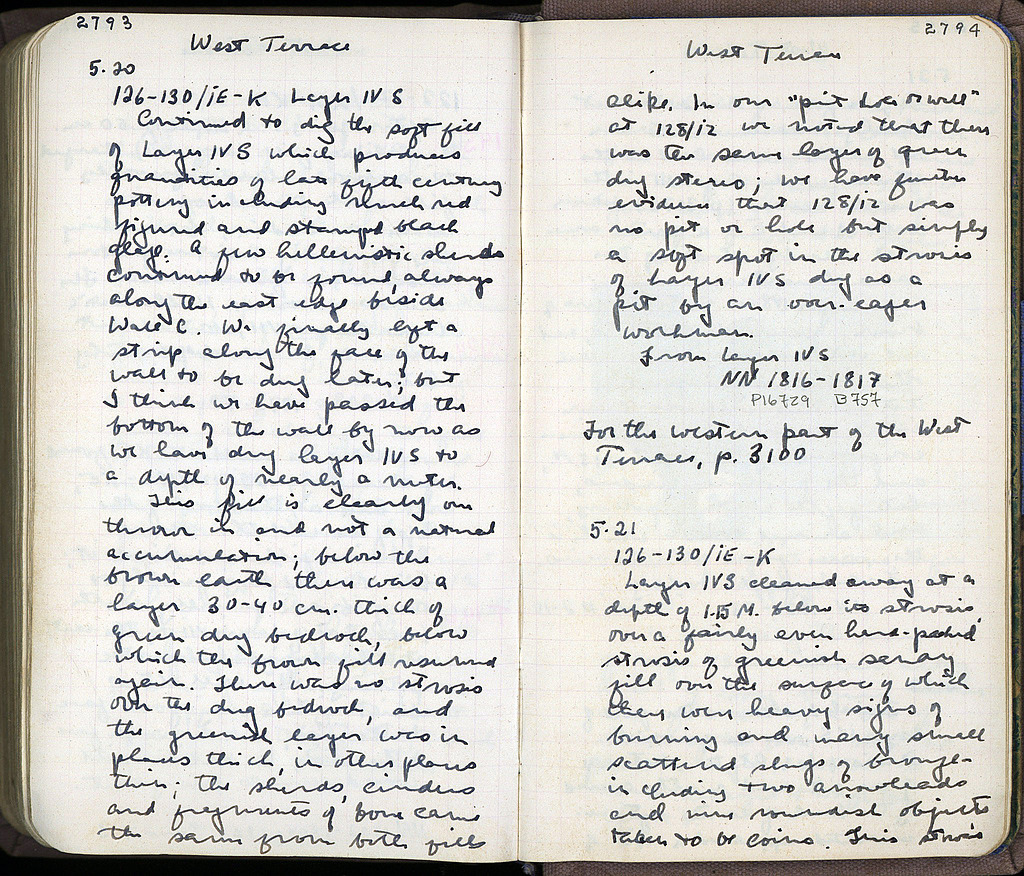 2793
West Terrace
5.20
126-130/iE-K Layer IV S
Continued to dig the soft fill
of Layer IV S which produces
quantities of late fifth century
pottery including much red
figured and stamped black
glaze. A few hellenistic sherds
continued to be found, always
along the east edge beside
Wall C. We finally left a
strip along the face of the
wall to be dug later; but
I think we have passed the
bottom of the wall by now as
we have dug layer IV S to
a depth of nearly a meter.
This fill is clearly one
thrown in and not a natural
accumulation; below the
brown earth there was a
layer 30-40 cm. thick of
green dug bedrock, below
which the brown fill resumed
again. There was no strosis
over the dug bedrock, and
the greenish layer was in
places thick, in other places
thin; the sherds, cinders
and fragments of bone came
the same from both fills
2794
West Terrace
alike. In our "pit hole or well"
at 128/iZ we noted that there
was the same layer of green
dug stereo; we have further
evidence that 128/iZ was
no pit or hole but simply
a soft spot in the strosis
of Layer IV S dug as a
pit by an over-eager
workman.
From Layer IV S
NN 1816-1817
P16729 B757
For the western part of the West
Terrace, p. 3100
5.21
126-130/iE-K
Layer IV S cleaned away at a
depth of 1.15 M. below its strosis
over a fairly even hard-packed
strosis of greenish sandy
fill over the surface of which
there were heavy signs of
burning and many small
scattered slugs of bronze-
including two arrowheads
and nine roundish objects
taken to be coins. This strosis